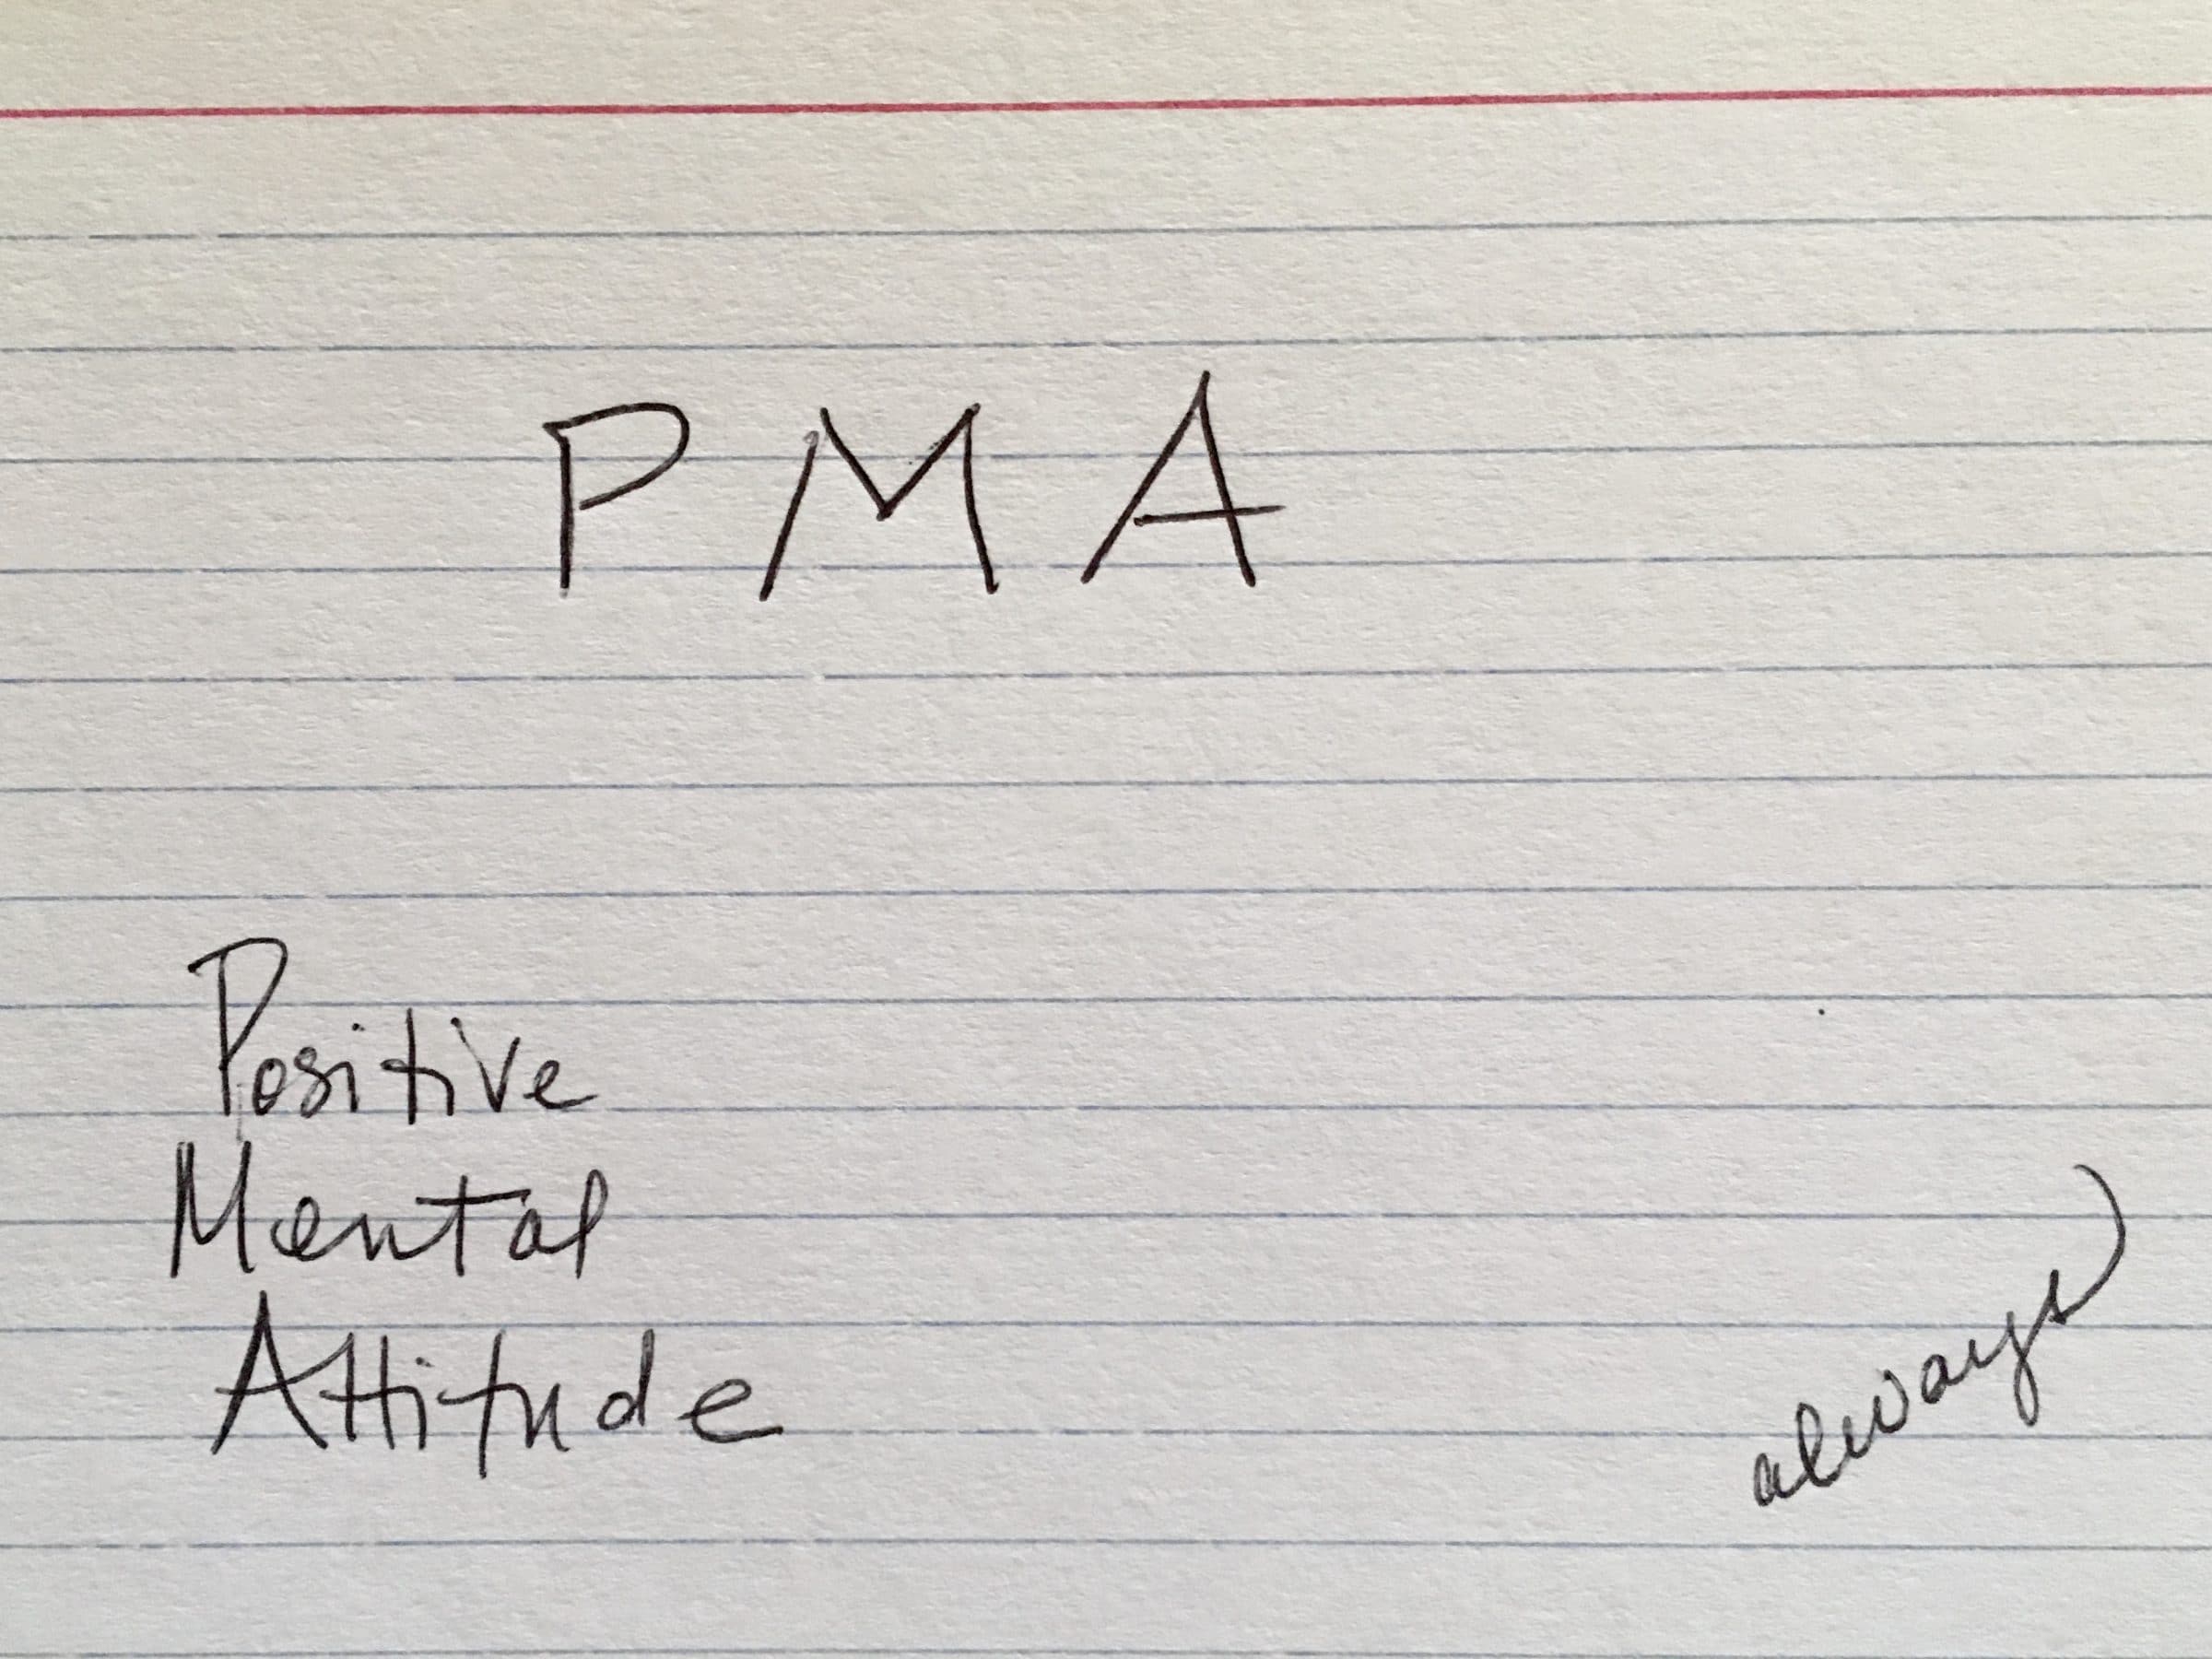 PMA
Positive
Mental
Attitude
always